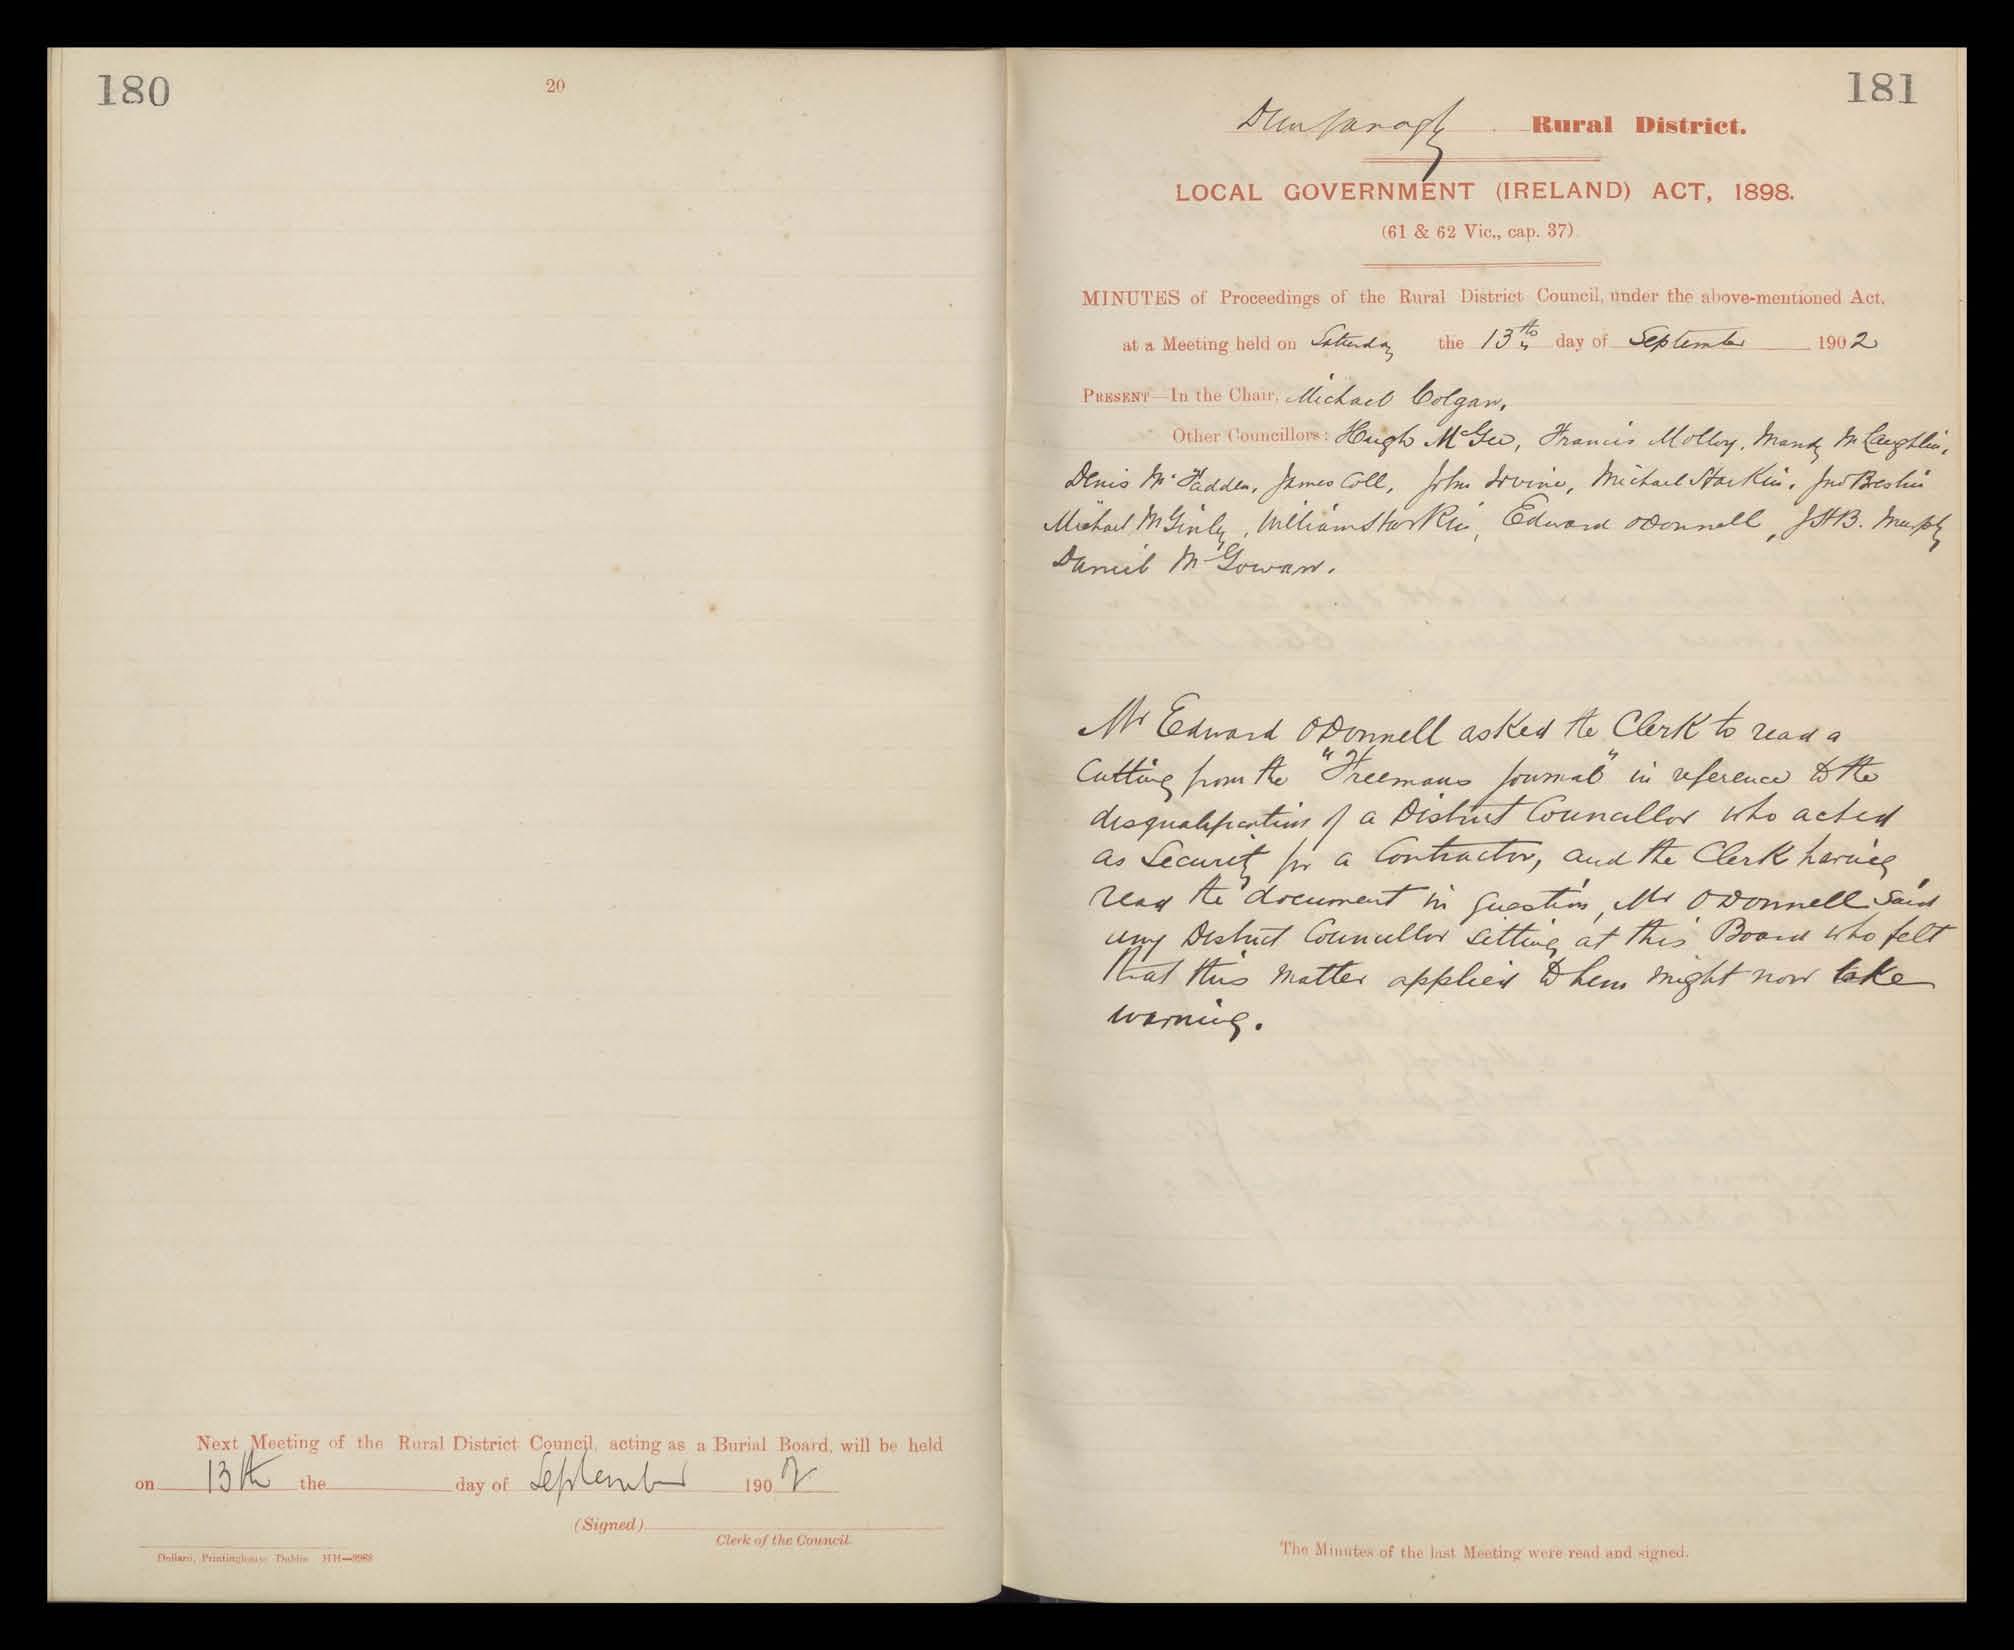 180
20
Next Meeting of the Rural District Council, acting as a Burial Board, will be held
on 13th the day of September 1902
(Signed)
Clerk of the Council.
Dollard, Printinghouse, Dublin HH—9968
181
Dunfanaghy Rural District.
LOCAL GOVERNMENT (IRELAND) ACT, 1898.
(61 & 62 Vic., cap. 37)
MINUTES of Proceedings of the Rural District Council, under the above-mentioned Act,
at a Meeting held on Saturday the 13th day of September 1902
PRESENT—In the Chair, Michael Colgan,
Other Councillors: Hugh McGee, Francis Molloy, Manus McLaughlin,
Denis McFadden, James Coll, John Irvine, Michael Harkin, Jno Breslin
Michael McGinley, William Harkin, Edward ODonnell, J St B. Murphy
Daniel McGowan.
Mr Edward ODonnell asked the Clerk to read a
Cutting from the "Freemans Journal" in reference to the
disqualification of a District Councillor who acted
as Security for a Contractor, and the Clerk having
read the document in question, Mr ODonnell said
any District Councillor sitting at this Board who felt
that this matter applied to him might now take
warning.
The Minutes of the last Meeting were read and signed.